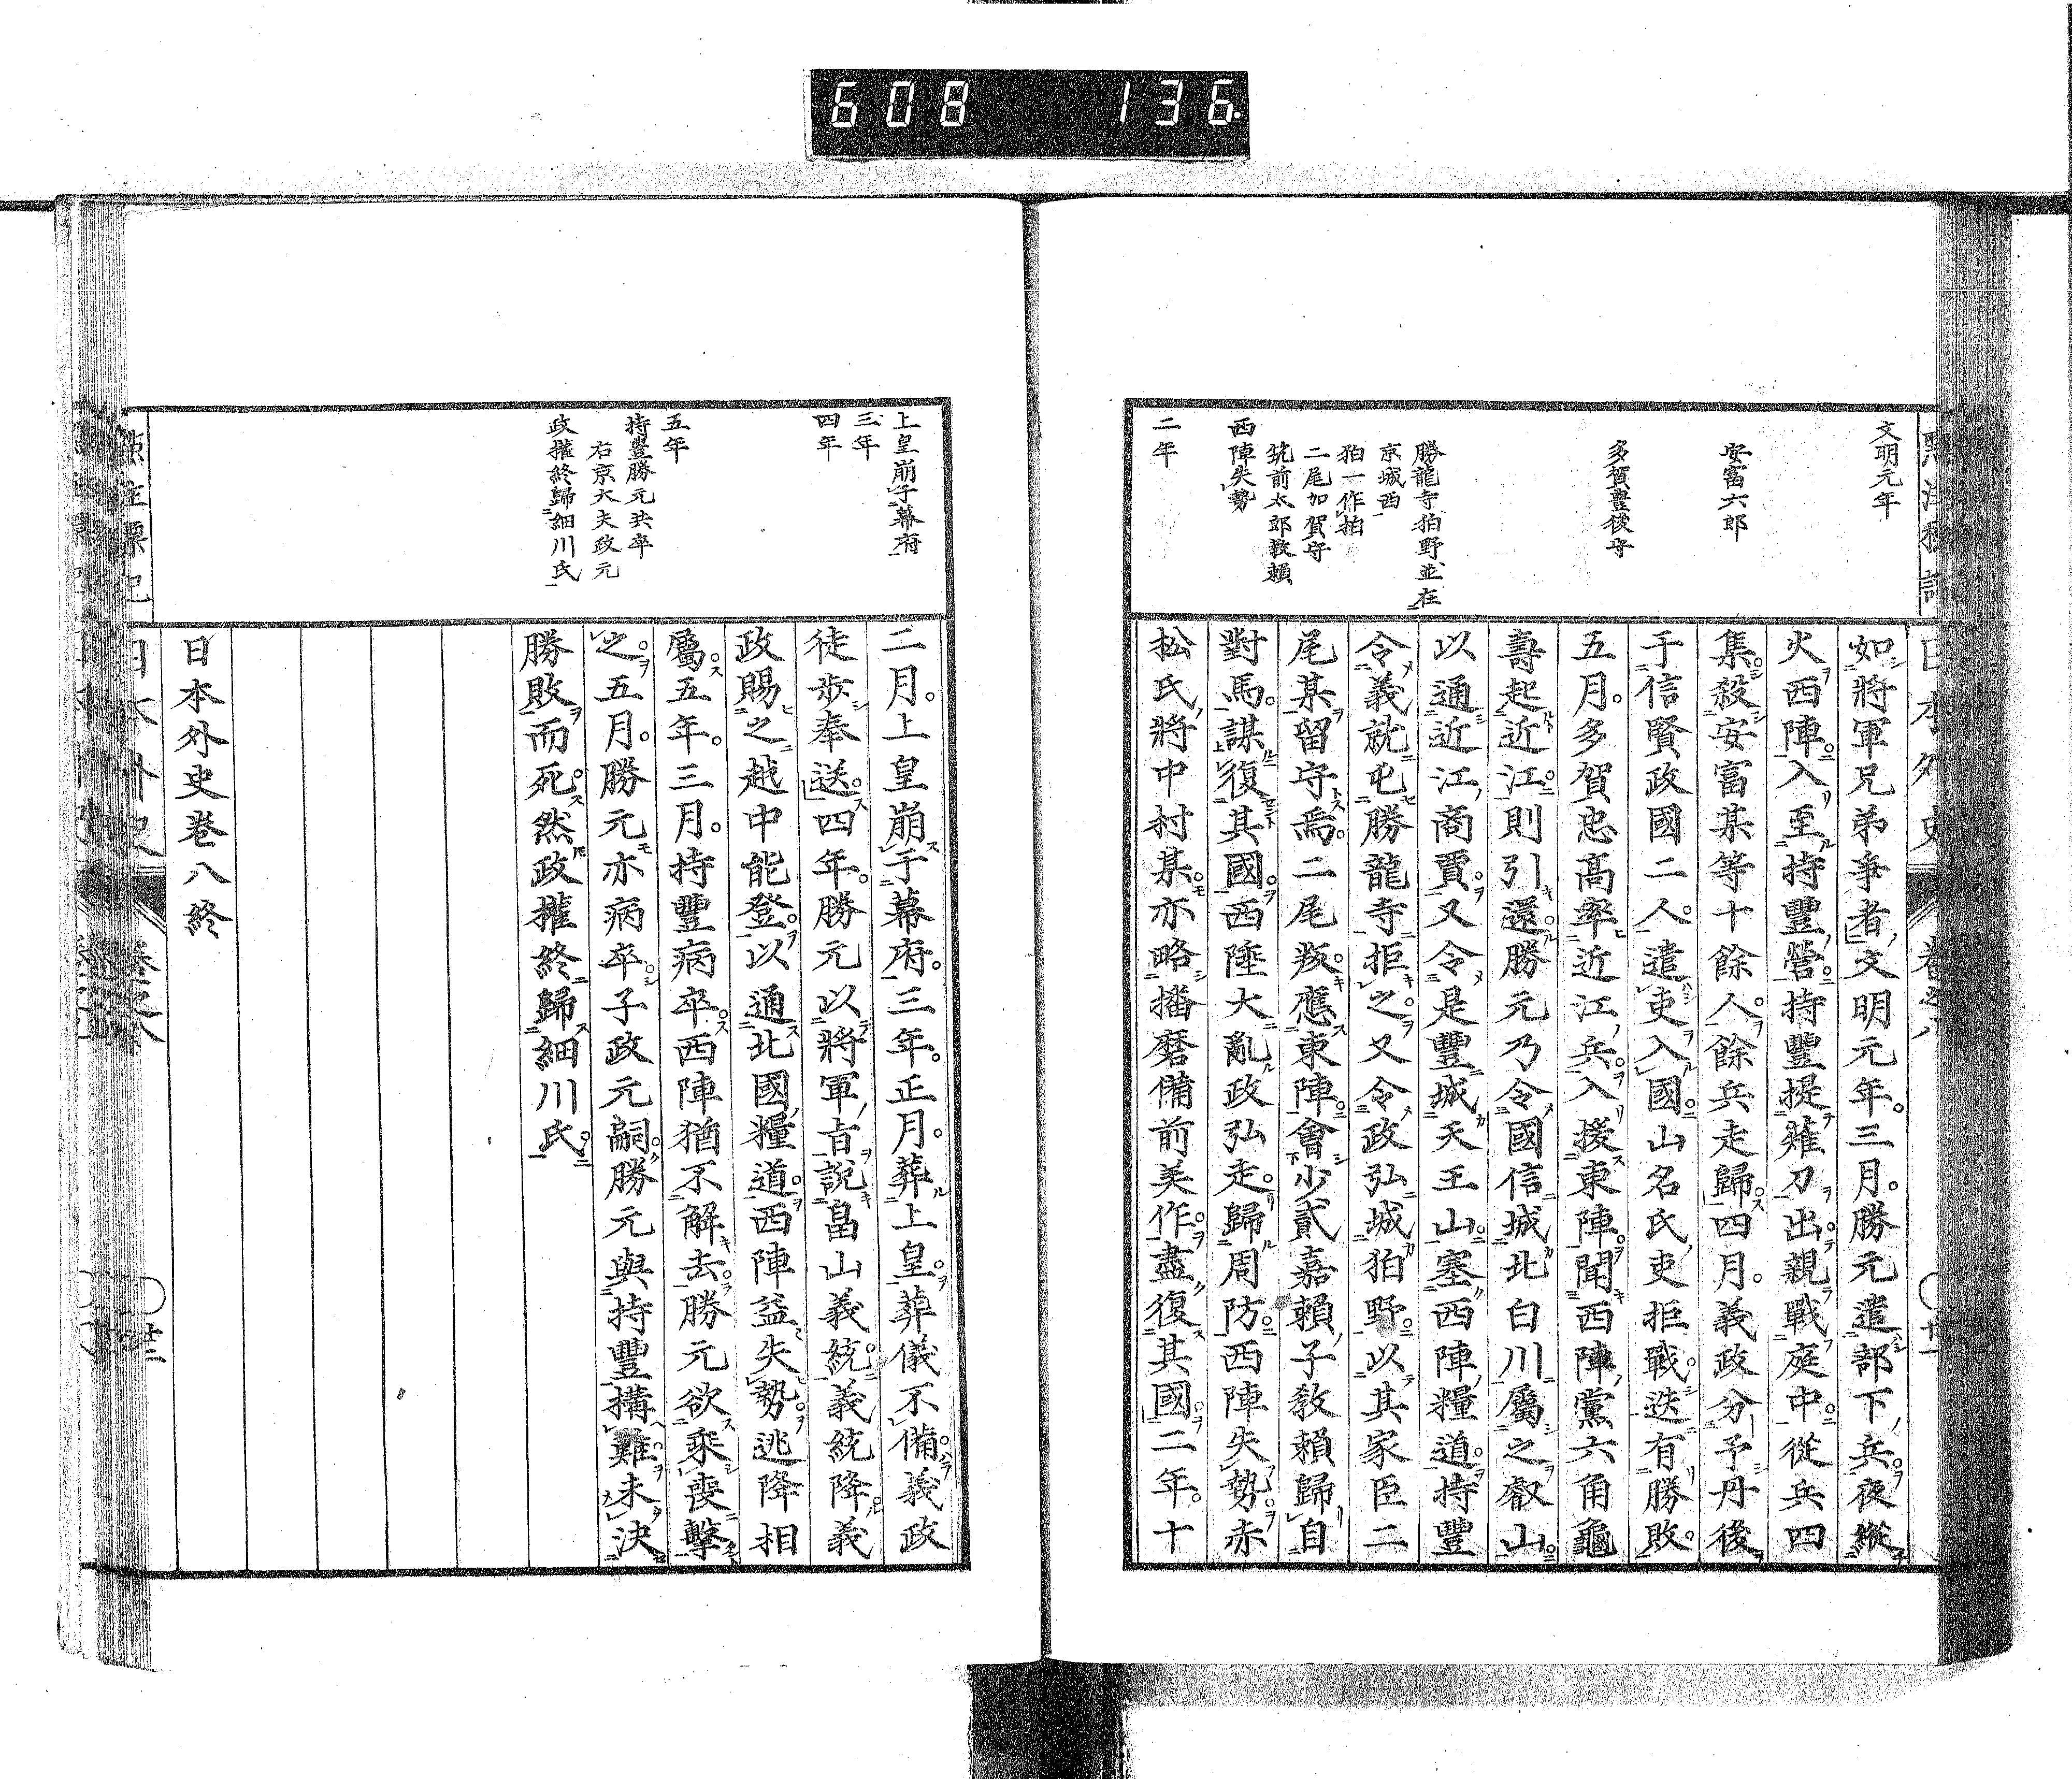 608 136
文明元年
安富六郎
多賀豐後守
勝龍寺狛野並在
京城西
狛一作拍
二尾加賀守
筑前太郎教頼
西陣失勢
二年
如將軍兄弟爭者文明元年三月勝元遣部下兵夜縱
火西陣入至持豐營持豐提薙刀出親戰庭中從兵四
集殺安富某等十餘人餘兵走歸四月義政分予丹後
于信賢政國二人遣吏入國山名氏吏拒戰迭有勝敗
五月多賀忠高率近江兵入援東陣聞西陣黨六角龜
壽起近江則引還勝元乃令國信城北白川屬之叡山
以通近江商賈又令是豐城天王山塞西陣糧道持豐
令義就屯勝龍寺拒之又令政弘城狛野以其家臣二
尾某留守焉二尾叛應東陣會少貳嘉賴子敎賴歸自
對馬謀復其國西陲大亂政弘走歸周防西陣失勢赤
松氏將中村某亦略播磨備前美作盡復其國二年十
上皇崩于幕府
三年
四年
五年
持豐勝元共卒
右京大夫政元
政權終歸細川氏
二月上皇崩于幕府三年正月葬上皇葬儀不備義政
徒步奉送四年勝元以將軍旨說畠山義統義統降義
政賜之越中能登以通北國糧道西陣益失勢逃降相
屬五年三月持豐病卒西陣猶不解去勝元欲乘喪擊
之五月勝元亦病卒子政元嗣勝元與持豐搆難未決
勝敗而死然政權終歸細川氏
日本外史卷八終